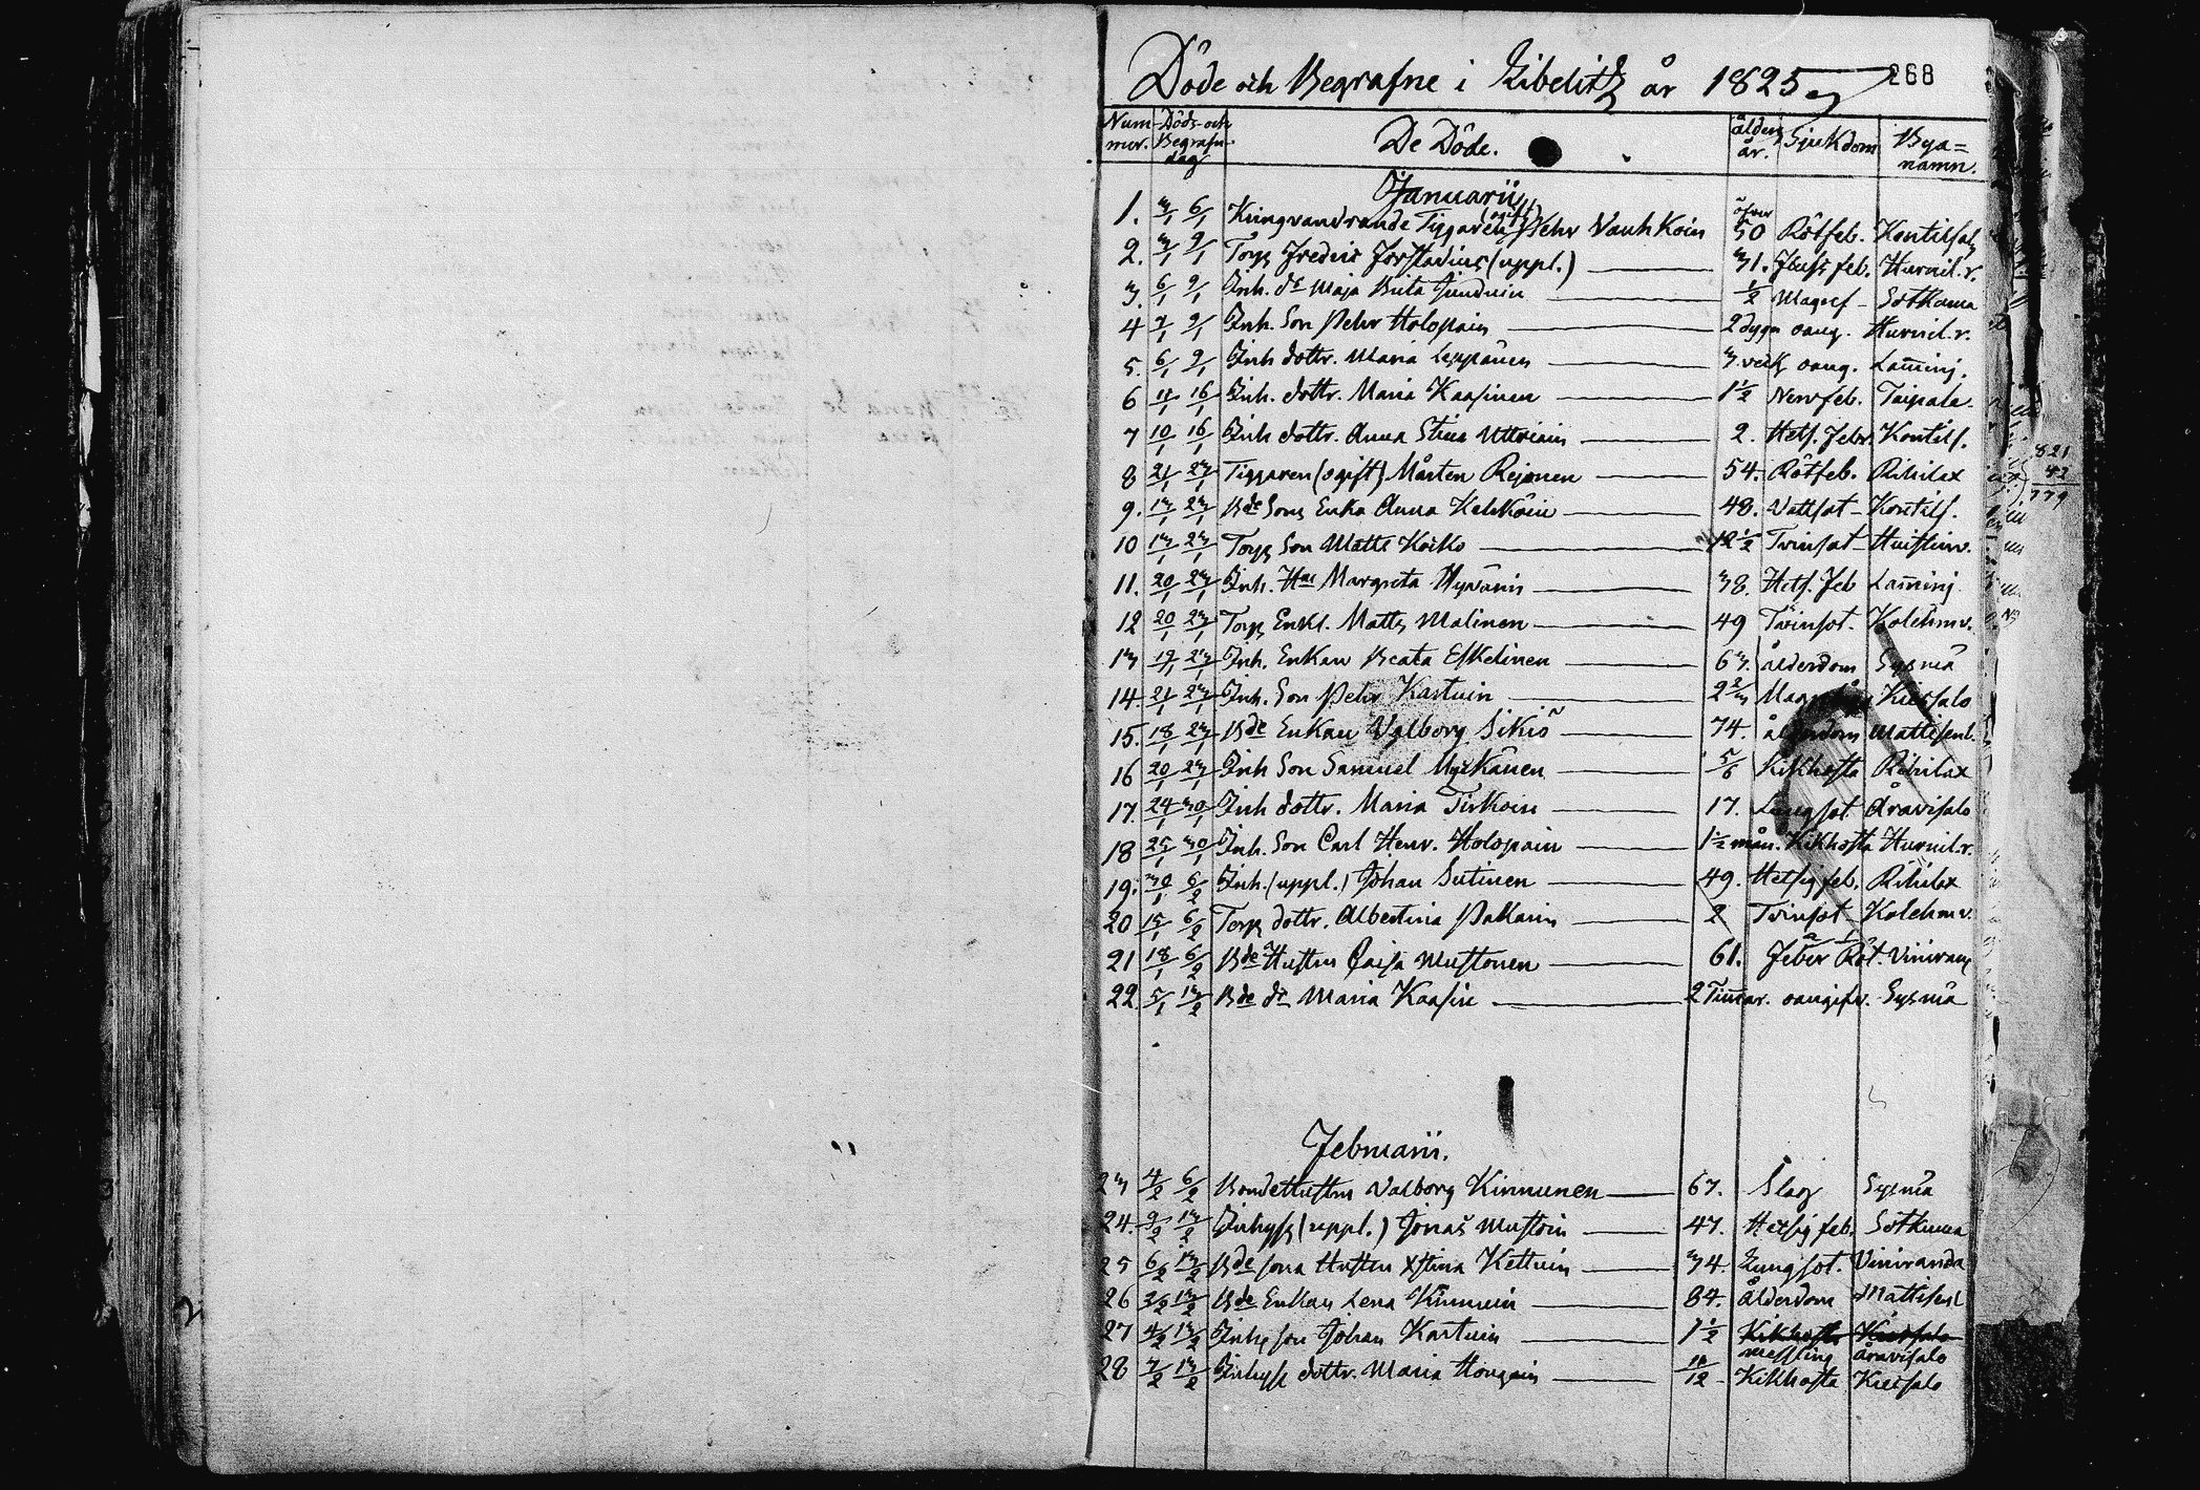 Döde och Begrafne i Libelitz år 1825
268
Num-mer. Döds- och Begrafn. dag De Döde. ålder år. Sjukdom Bya=namn.
Januarii
1. 3/1 6/1 Kringvandrande Tiggaren (ogift) Pehr Vauhkoin öfver 50 Rötfeb. Kontilax
2. 3/1 9/1 Torp. Fredric Forstadius (uppl.) 31. feb. Hurnil.r.
3. 6/1 9/1 Inh. dr Maja Brita 1/2 Magref Sotkuma
4 7/1 9/1 Inh. Son Pehr Holopain 2 dygn oang. Hurnil.r.
5. 6/1 9/1 Inh dottr. Maria Leppänen 3. veck oang. Lam̄inj.
6 11/1 16/1 Inh. dottr. Maria Kaasinen 1 1/2 Nervfeb. Taipale.
7 10/1 16/1 Inh dottr. Anna Stina Uttriain 2. Hets. Febr. Kontils.
8 21/1 23/1 Tiggaren (ogift) Mårten Rejonen 54. Rötfeb. Rihilax
9. 13/1 23/1 Bde Sons Enka Anna Kahkoin 48. Vattsot Kontils.
10 13/1 23/1 Torp Son Matts Koiko 12 1/2 Tvinsot Huistinv.
11. 20/1 23/1 Inh. Hu Margreta Hyvärin 38. Hets. Feb Lam̄inj
12 20/1 23/1 Torp Enkl. Matts Malinen 49 Tvinsot. Kolehmv.
13 19/1 23/1 Inh. Enkan Beata Eskelinen 63. ålderdom Sysmä
14. 21/1 23/1 Inh. Son Pehr Kartuin 2 2/3 Kuusalo
15. 18/1 23/1 Bde Enkan Valborg Sikiö 74. ålderdom Mattisenl.
16 20/1 23/1 Inh Son Samuel Myikänen 5/6 Kikhosta Rihilax
17. 24/1 30/1 Inh dottr. Maria Tirkoin 17. Lungsot. Aravisalo
18 25/1 30/1 Inh. Son Carl Henr. Holopain 1 1/2 mån. Kikhosta Hurnil.r.
19. 30/1 6/2 Inh. (uppl.) Johan Sutinen 49. Hetsig feb. Rihilax
20 15/1 6/2 Torp dottr. Albertina Pakarin 2 Tvinsot Kolehmv.
21 18/1 6/2 Bde Hustru Caisa Mustonen 61. Feber Röt. Viniran
22. 5/1 13/2 Bde dr Maria Kaasin 2 Tim̄ar. oangifv. Sysmä
Februarii.
23 4/2 6/2 Bondehustru Valborg Kinnunen 67. Slag Sysmä
24. 9/2 13/2 Inhyss (uppl.) Jonas Mustoin 47. Hetsig feb. Sotkuma
25 6/2 13/2 Bde sona Hustru Xstina Kettuin 34. Lungsot. Viniranda
26 3/2 13/2 Bde Enkan Lena Kinnuin 84. Ålderdom Mattisenl
27 4/2 13/2 Inhys son Johan Kartuin 1 1/2 Kikhosta Kuusalo
messling Aravisalo
28 7/2 13/2 Inhyss dottr. Maria Hougain 11/12 Kikhosta Kuusalo
821
42
779